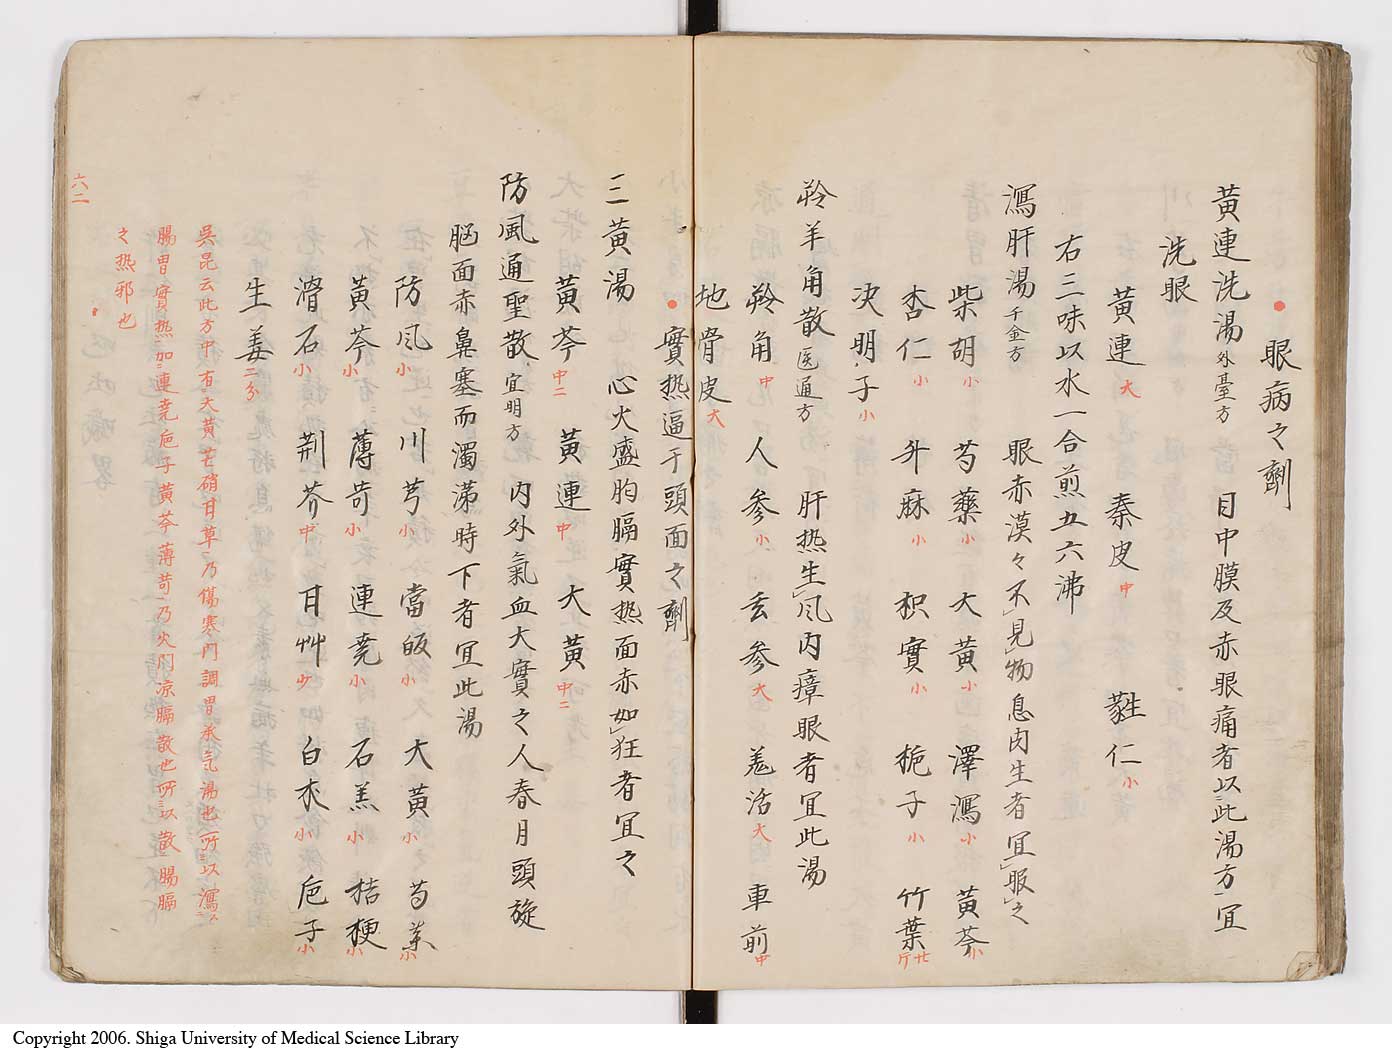 眼病之劑
黃連洗湯外臺方 目中膜及赤眼痛者以此湯方宜
洗眼
黃連大 秦皮中 蕤仁小
右三味以水一合煎五六沸
瀉肝湯千金方 眼赤漠々不見物息肉生者宜服之
柴胡小 芍藥小 大黃小 澤瀉小 黃芩小
杏仁小 升麻小 枳實小 梔子小 竹葉
决明子小
羚羊角散医通方 肝热生風内瘴眼者宜此湯
羚角中 人參小 玄參大 羗活大 車前中
地骨皮大
實热逼于頭面之劑
三黃湯 心火盛胸膈實热面赤如狂者宜之
黃芩中二 黃連中 大黃中二
防風通聖散宣明方 内外氣血大實之人春月頭旋
脳面赤鼻塞而濁涕時下者宜此湯
防风小 川芎小 當皈小 大黃小 芍薬小
黃芩小 薄苛小 連堯小 石羔小 桔梗小
滑石小 荆芥中 甘艸少 白朮小 巵子小
生姜二分
吳昆云此方中有大黃芒硝甘草乃傷寒門調胃承气湯也所以瀉
腸胃實热加連堯巵子黃芩薄苛乃火門凉膈散也所以散腸膈
之热邪也
六二
Copyright 2006. Shiga University of Medical Science Library